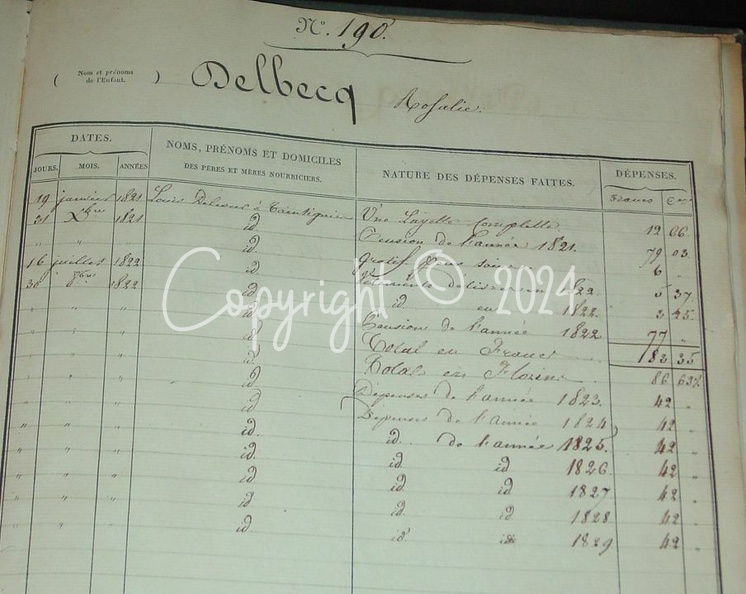 N°. 190.
( Nom et prénoms de l'Enfant. ) Delbecq Rosalie.
DATES. NOMS, PRÉNOMS ET DOMICILES DES PERES ET MÈRES NOURRICIERS. NATURE DES DÉPENSES FAITES. DÉPENSES.
JOURS. MOIS. ANNÉES Francs Cmes
19 janvier 1821 Louis à Taintignies Une Layette Complette 12 06
31 Xbre 1821 id Pension de l'année 1821. 79 03
" " " id pour soins 6 "
16 juillet 1822 id Vêtements en 1822. 5 37
30 1822 id id en 1822. 3 45
" " " id Pension de l'année 1822 77 "
" " " id Total en Francs 182 35
" " " id Total en Florins 86 63½
" " " id Dépenses de l'année 1823. 42 "
" " " id Dépenses de l'année 1824 42 "
" " " id id. de l'année 1825. 42 "
" " " id id id 1826. 42 "
" " " id id id 1827 42 "
" " " id id id 1828 42 "
" " " id id id 1829 42 "
Copyright © 2024